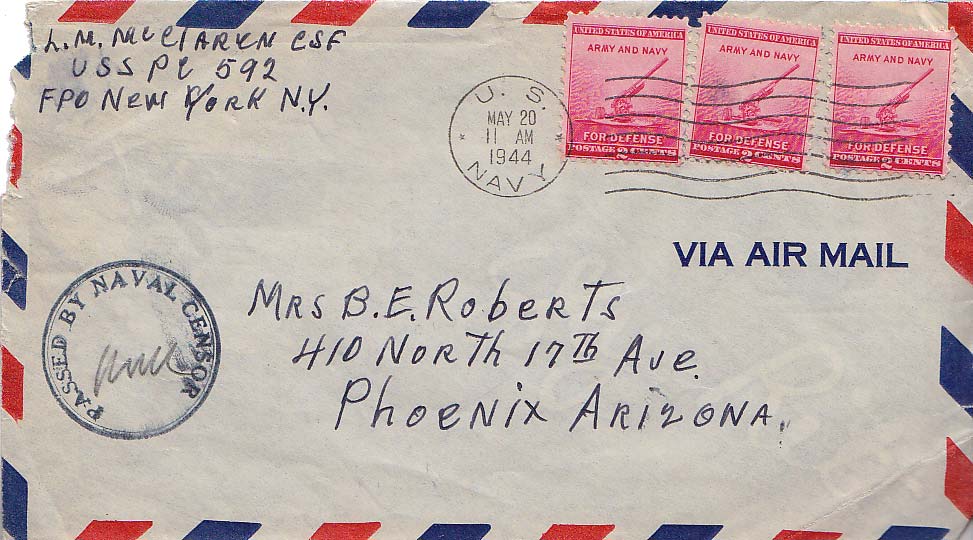 L. M. McClaren CSF
USS PC 592
FPO New York N.Y.
U. S. NAVY
MAY 20
11 AM
1944
UNITED STATES OF AMERICA
ARMY AND NAVY
FOR DEFENSE
POSTAGE 2 CENTS
UNITED STATES OF AMERICA
ARMY AND NAVY
FOR DEFENSE
POSTAGE 2 CENTS
UNITED STATES OF AMERICA
ARMY AND NAVY
FOR DEFENSE
POSTAGE 2 CENTS
VIA AIR MAIL
PASSED BY NAVAL CENSOR
Mrs B. E. Roberts
410 North 17th Ave.
Phoenix Arizona.